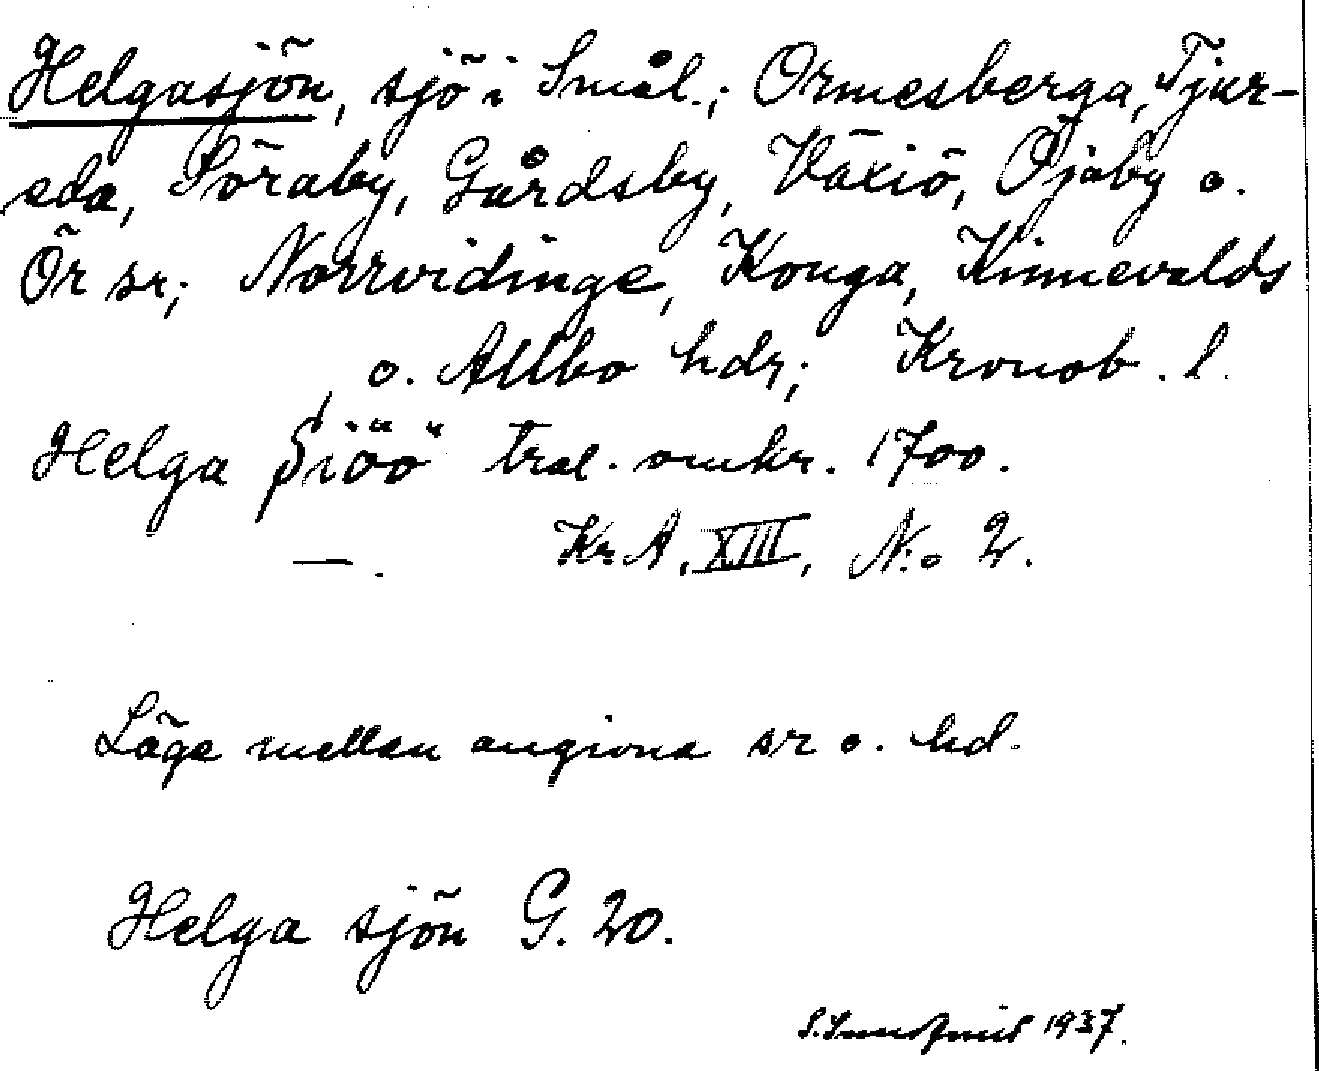 Helgasjön, sjö i Smål.; Ormesberga, Tjur-
eda, Söraby, Gårdsby, Växiö, Öjaby o.
Ör sr; Norrvidinge, Konga, Kinnevalds
o. Allbo hdr; Kronob. l.
Helga Siöö tral. omkr. 1700.
—. Kr.A, XIII, N:o 2.
Läge mellan angivna sr o. hd.
Helga sjön G. 20.
1937.